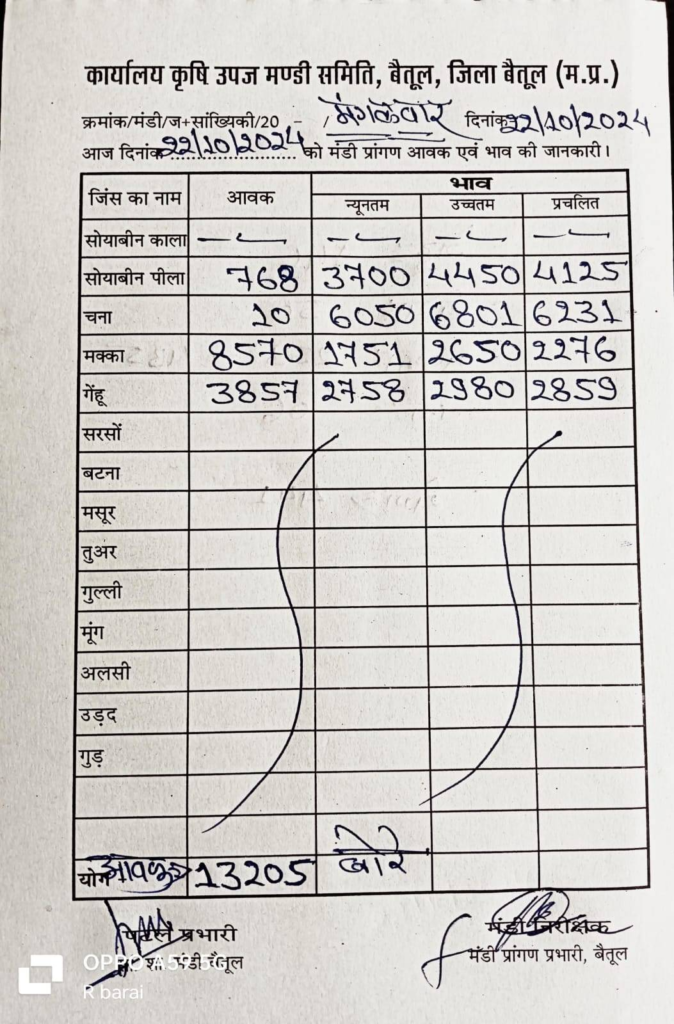 कार्यालय कृषि उपज मण्डी समिति, बैतूल, जिला बैतूल (म.प्र.)
क्रमांक/मंडी/ज+सांख्यिकी/20 - / मंगलवार दिनांक 22/10/2024
आज दिनांक 22/10/2024 को मंडी प्रांगण आवक एवं भाव की जानकारी।
जिंस का नाम आवक भाव
न्यूनतम उच्चतम प्रचलित
सोयाबीन काला — — — —
सोयाबीन पीला 768 3700 4450 4125
चना 10 6050 6801 6231
मक्का 8570 1751 2650 2276
गेंहू 3857 2758 2980 2859
सरसों
बटना
मसूर
तुअर
गुल्ली
मूंग
अलसी
उड़द
गुड़
योग आवक 13205 बोरे
प्रभारी
शा. मंडी बैतूल
मंडी निरीक्षक
मंडी प्रांगण प्रभारी, बैतूल
OPPO A5
R barai